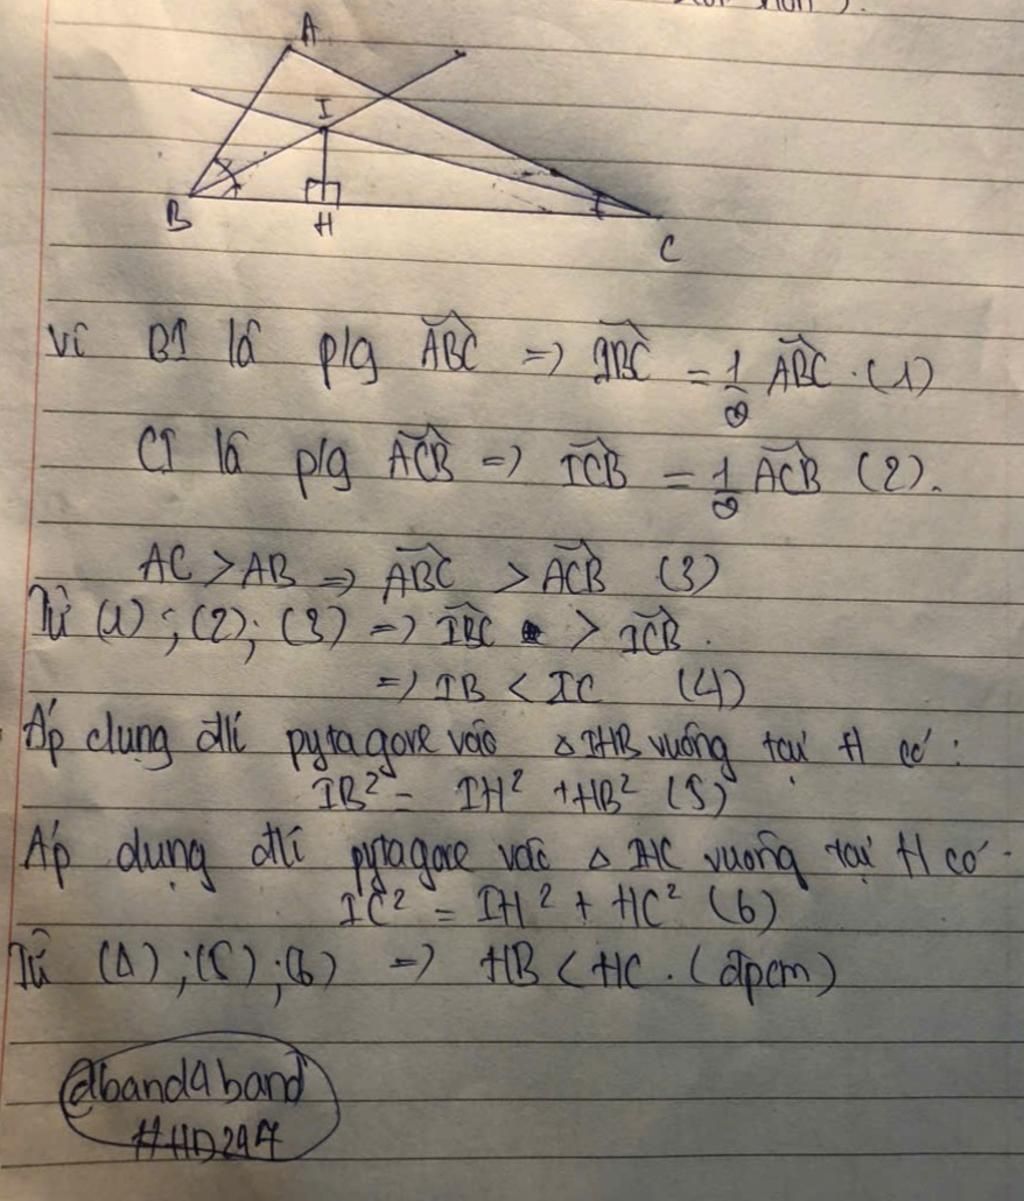 A
I
B
H
C
Vì BI là p/g ABC => IBC = 1/2 ABC. (1)
CI là p/g ACB => ICB = 1/2 ACB (2).
AC > AB => ABC > ACB (3)
Từ (1); (2); (3) => IBC > ICB.
=> IB < IC (4)
Áp dụng đlí pytagore vào △ IHB vuông tại H có:
IB² = IH² + HB² (5)
Áp dụng đlí pytagore vào △ IHC vuông tại H có.
IC² = IH² + HC² (6)
Từ (4); (5); (6) => HB < HC. (đpcm)
@band4band
#HD297